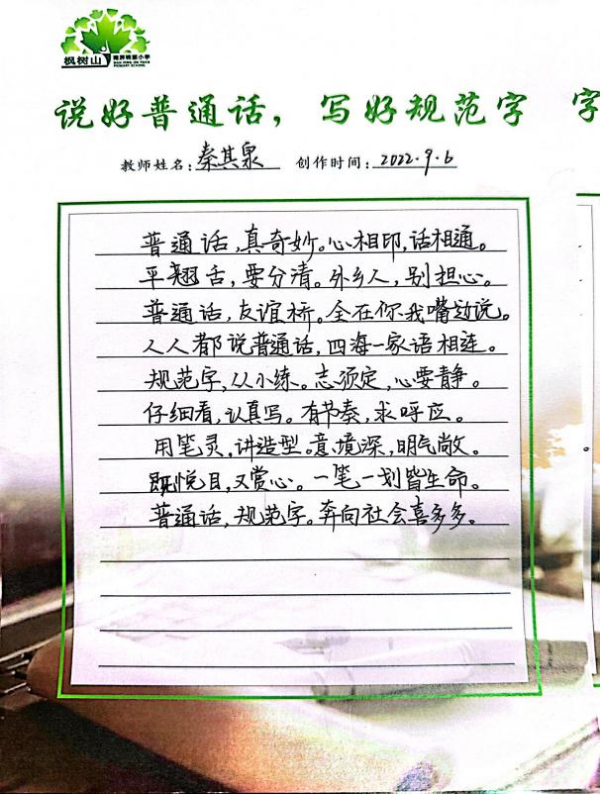 枫树山
说好普通话，写好规范字 字
教师姓名：秦其泉 创作时间：2022.9.6
普通话,真奇妙。心相印,话相通。
平翘舌,要分清。外乡人,别担心。
普通话,友谊桥。全在你我嘴边说。
人人都说普通话,四海一家语相连。
规范字,从小练。志须定,心要静。
仔细看,认真写。有节奏,求呼应。
用笔灵,讲造型。意境深,明气敞。
既悦目,又赏心。一笔一划皆生命。
普通话,规范字。奔向社会喜多多。